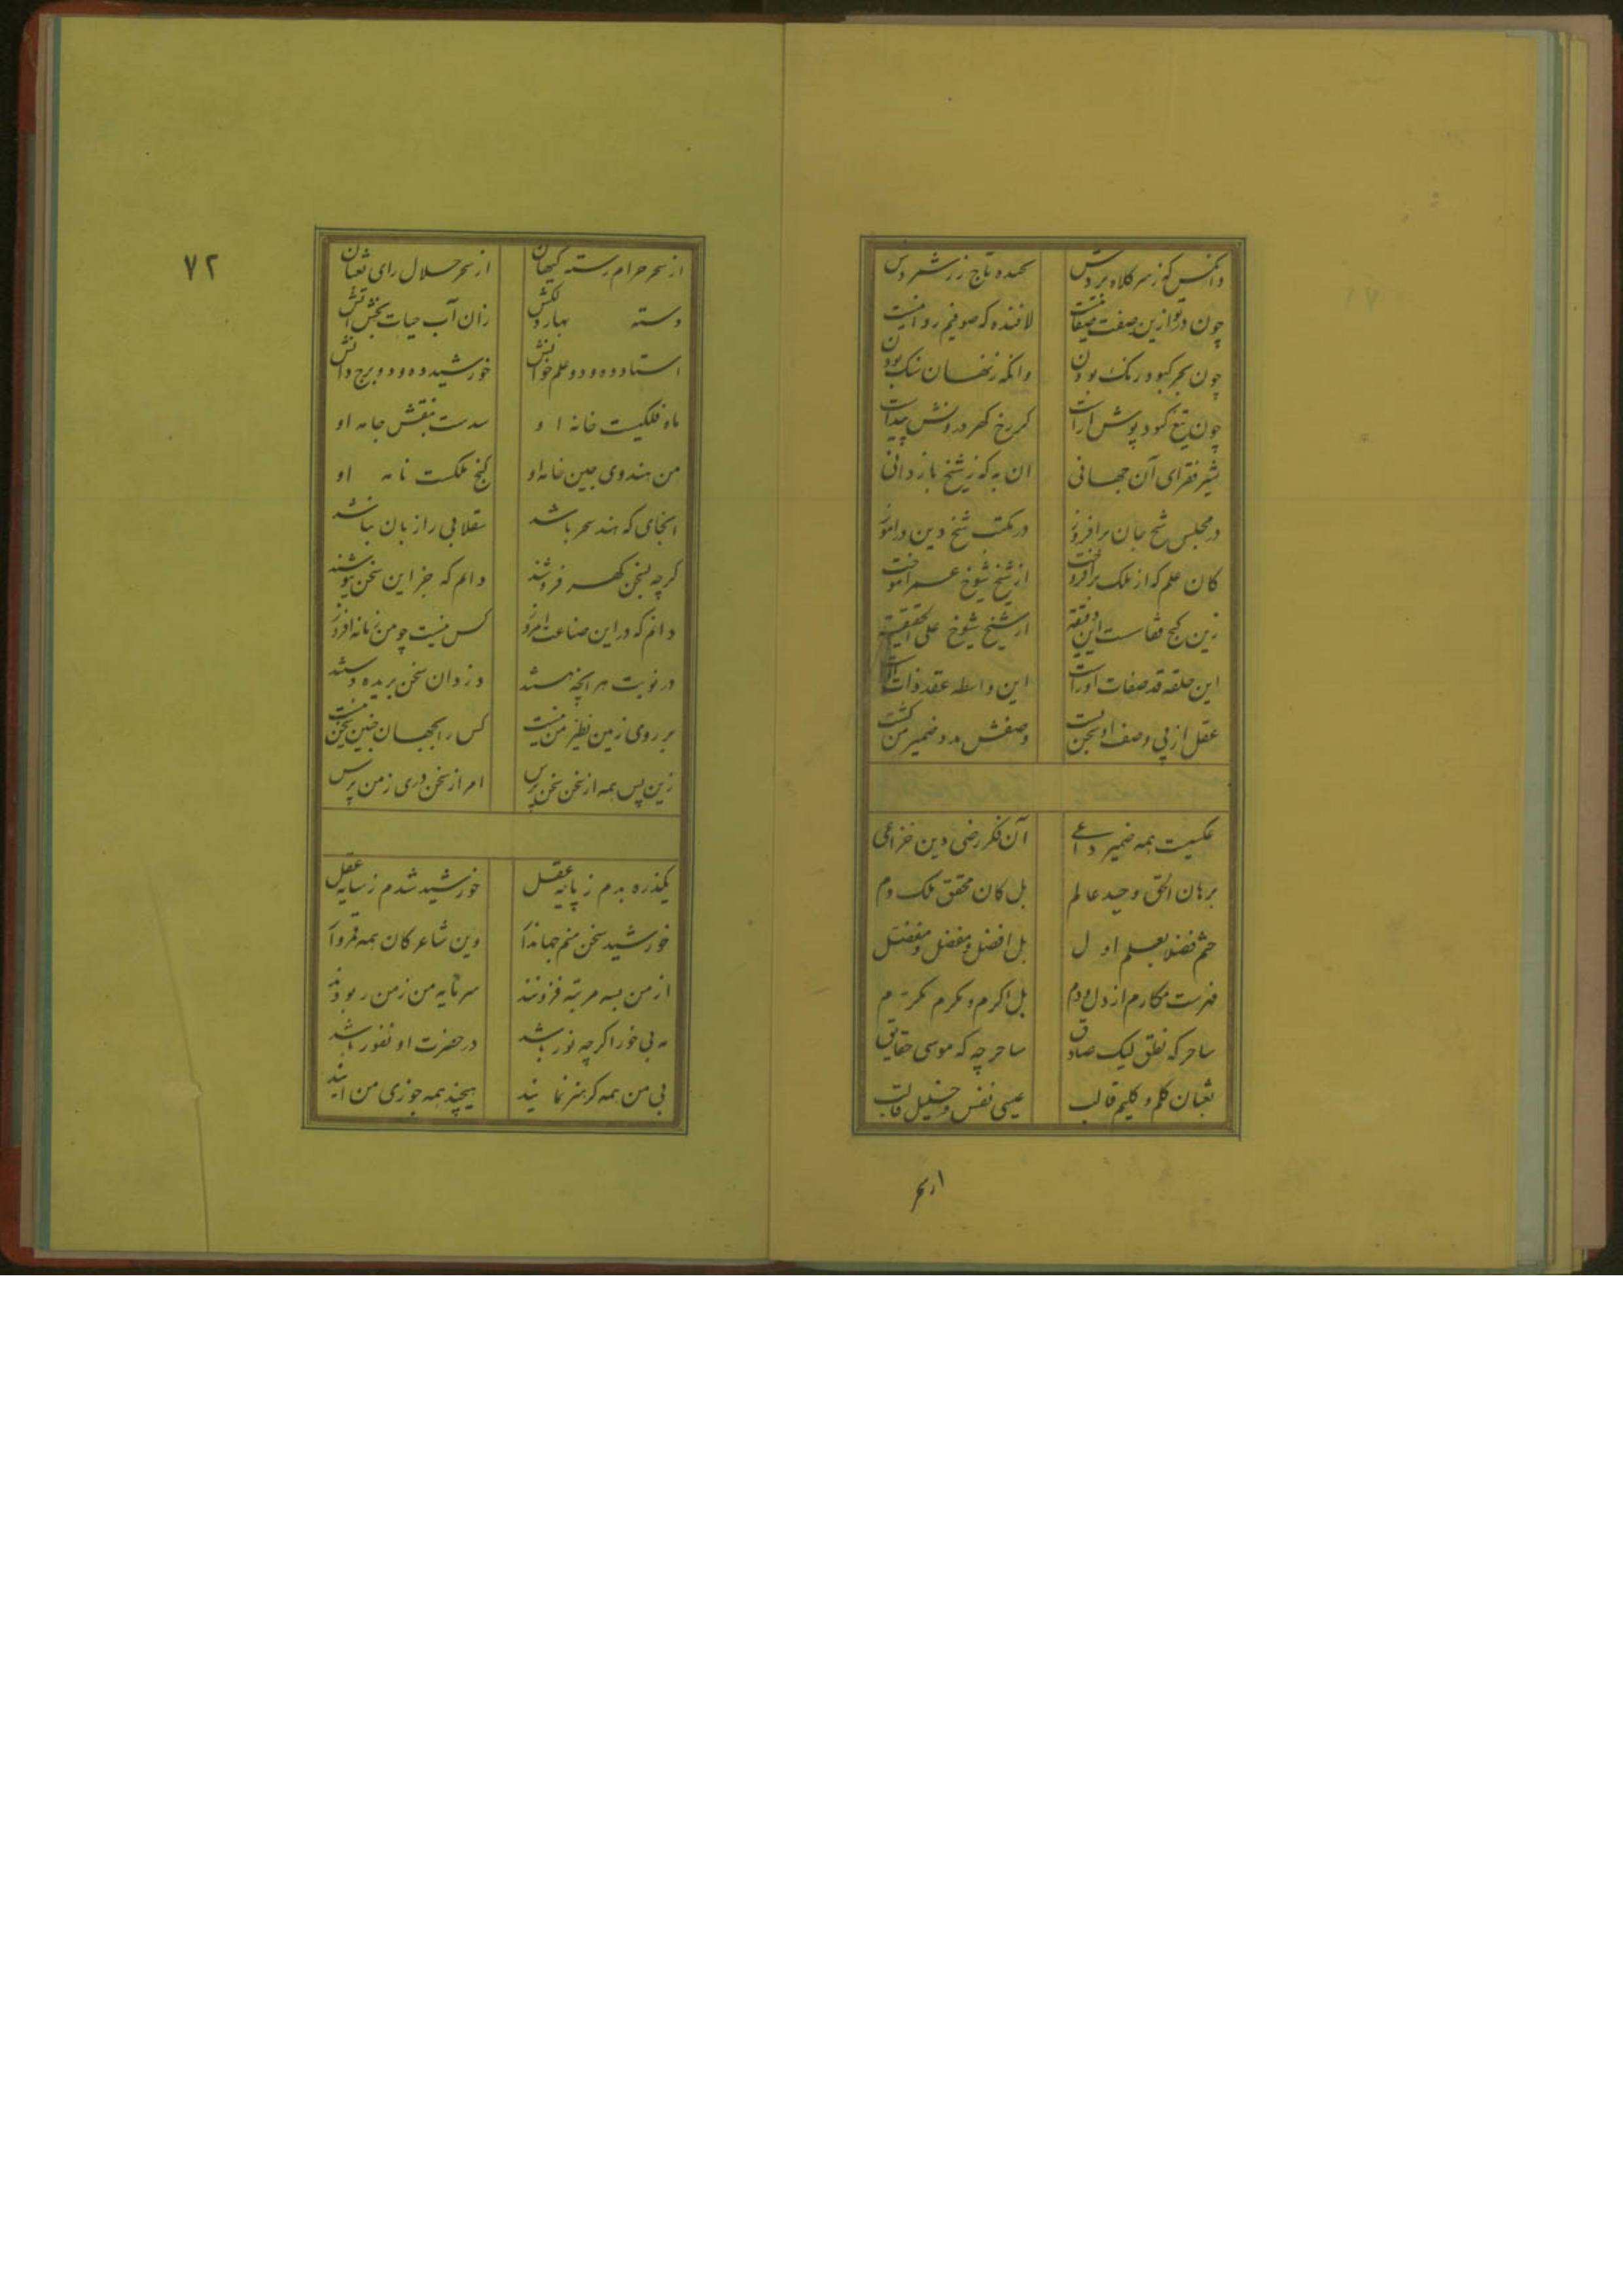 وانکس که ز سر کلاه بردش	تاج زر شمردش
چون در تو ازین صفت صفا نیست	لافنده که صوفیم روا نیست
چون بحر کبود رنک بودن	وانکه نهان بودن
چون تیغ کبود پوش
فقرای آن جهانی	ان به که ز شیخ باز دانی
در مجلس شیخ جان برافروز	در مکتب شیخ دین در آموز
کان علم که از ملک برافروخت	از شیخ شیوخ عمر آموخت
زین	از شیخ شیوخ علی الحقیقه
این حلقه قد صفات اورا	این واسطه عقد ذات
عقل از پی وصف او	وصفش مدد ضمیر من کشت
عکسیت همه ضمیر داعی	آن فکر رضی دین خزاعی
برهان الحق وحید عالم	بل کان محقق ملک دم
ختم فضلا بعلم اول	بل افضل و مفضل و مفضل
فهرست مکارم از دل و دم	بل اکرم و مکرم مکرم
ساحر که نطق لیک صادق	ساحر چه که موسی حقایق
ثعبان کلم و کلیم قالب	عیسی نفس و خلیل قالب
از سحر
۷۲
از سحر حرام رسته کیهان	از سحر حلال رای ثعبان
دسته بهار دلکش	زان آب حیات بخش آتش
استاد ده و دو علم خوانش	خورشید ده و دو برج دانش
ماه فلکیست خانه او	بنقش جامه او
من هندوی خانه او	کنج ملکست نامه او
انجای که هند سحر باشد	سقلابی را زبان نباشد
کرچه بسخن کهر فروشند	دانم که جز این سخن نیوشند
دانم که در این صناعت امروز	کس نیست چو من زمانه افروز
در نوبت هر انچه هستند	دزدان سخن بریده دستند
بر روی زمین نظیر من نیست	کس را بجهان چنین سخن نیست
زین پس همه از سخن سخن پرس	امر از سخن دری ز من پرس
یکذره بدم ز پایه عقل	خورشید شدم ز سایه عقل
خورشید سخن منم جهاندار	وین شاعرکان همه قمروار
از من بسه مرتبه فزونند	سرمایه من ز من ربودند
مه بی خور اکرچه نور باشد	در حضرت او نفور باشد
بی من همه کر هنر نمایند	هیچند همه جوزی من ایند